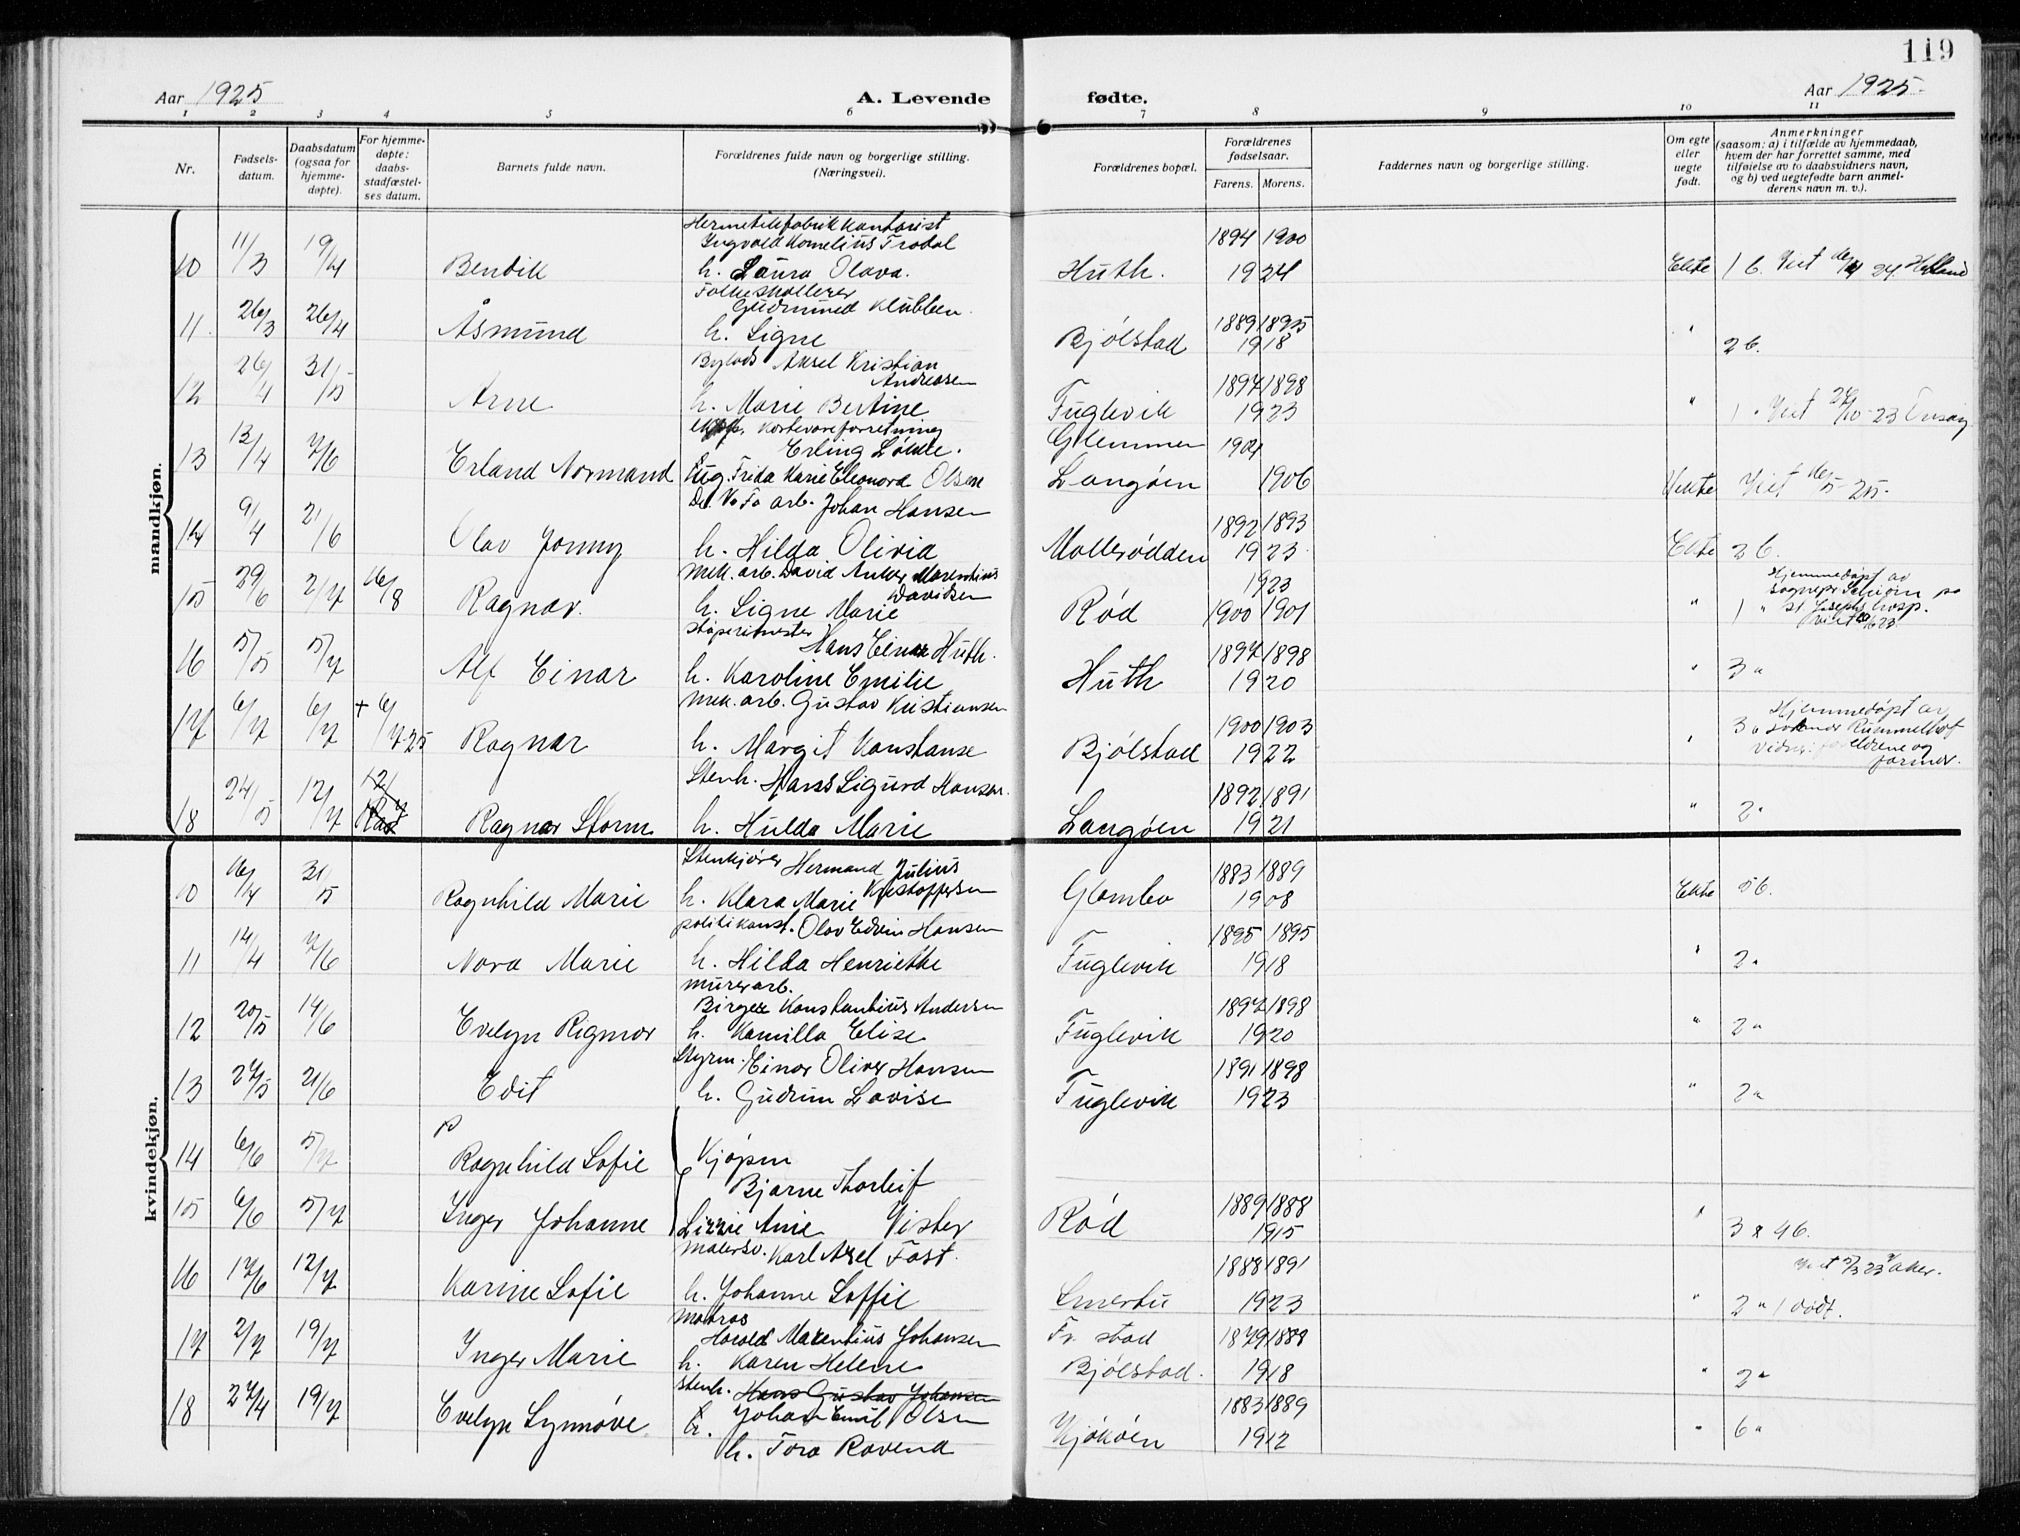 119
Aar 1925
A. Levende fødte.
Aar 1925.
1 2 3 4 5 6 7 8 9 10 11
Nr.
Fødsels-
datum.
Daabsdatum
(ogsaa for
hjemme-
døpte).
For hjemme-
døpte:
daabs-
stadfæstel-
ses datum.
Barnets fulde navn.
Forældrenes fulde navn og borgerlige stilling.
(Næringsvei).
Forældrenes bopæl.
Forældrenes
fødselsaar.
Farens. Morens.
Faddernes navn og borgerlige stilling.
Om egte
eller
uegte
født.
Anmerkninger
(saasom: a) i tilfælde av hjemmedaab,
hvem der har forrettet samme, med
tilføielse av to daabsvidners navn,
og b) ved uegtefødte barn anmel-
derens navn m. v.).
mandkjøn.
Hermetikfabrik kontorist
Ingvald Kornelius Trodal 1894 1900
10 11/3 19/4 Bendik h. Laura Olava. Huth. 1924 Ekte 1 b. Viet
Gudmund Klubben
11. 26/3 26/4 Åsmund h. Signe Bjølstad 1889 1895 1918 " 2 b.
Aksel Kristian
Andreasen
12 26/4 31/5 Arne h. Marie Bertine Fuglevik 1897 1898 1923 " Viet
kortevareforretning
Erling Løkke. Glemmen 1904
13 13/4 7/6 Erland Normand Pug. Frida Marie Eleonora Olsen Langøen 1906 Uekte Viet
De. No. Fa arb. Johan Hansen
14 9/4 21/6 Olav Jonny h. Hilda Olivia Mollerødden 1892 1893 1923 Ekte 2 b.
Mek. arb. David Anker Marentius
Davidsen 1923
15 29/6 2/7 16/8 Ragnar. h. Signe Marie Rød 1900 1901 " 1 "
Hjemmedøpt av
St. Josephs hosp.
støperimester
Hans Einar Huth.
16 5/5 5/7 Alf Einar h. Karoline Emilie Huth 1897 1898 1920 " 3 "
Mek. arb. Gustav Kristiansen
17 6/7 6/7 + 6/7 25 Ragnar h. Margit Konstanse Bjølstad 1900 1903 1922 " 3 "
Hjemmedøpt av
Rummelhof
Stenh. Hans Sigurd Hansen.
18 24/5 12/7 12/7 Ragnar Storm h. Hulda Marie Langøen 1892 1891 1921 " 2 "
kvindekjøn.
Stenkjører Hermand Julius
Kristoffersen
10 16/4 31/5 Ragnhild Marie h. Klara Marie Glombo 1883 1889 1908 Ekte 5 b.
politikonst. Olav Edvin Hansen
11 14/4 7/6 Nora Marie h. Hilda Henriette Fuglevik 1895 1895 1918 " 2 "
murerarb.
Birger Konstantius Andersen
12 20/5 14/6 Evelyn Rigmor h. Kamilla Elise Fuglevik 1897 1898 1920 " 2 "
Styrm. Einar Oliver Hansen
13 27/5 21/6 Edit h. Gudrun Lovise Fuglevik 1891 1898 1923 " 2 "
14 6/6 5/7 Ragnhild Sofie Kjøpm
Bjarne Thorleif
15 6/6 5/7 Inger Johanne Lizzie Anie Vister Rød 1889 1888 1915 " 3 & 4 b.
Malersv. Karl Axel Fast.
16 17/6 12/7 Karine Sofie h. Johanne Soffie Smertu 1888 1891 1923 " 2 " 1 dødt.
Viet Aker.
Matros
Harald Marentius Johansen Fr. stad
17 2/7 19/7 Inger Marie h. Karen Helene Bjølstad. 1879 1888 1918 " 2 "
Stenh. Hans Gustav Johansen
Johan Emil Olsen
18 27/4 19/7 Evelyn Synnøve h. Tora Ravena Kjøkøen 1883 1889 1912 " 6 "